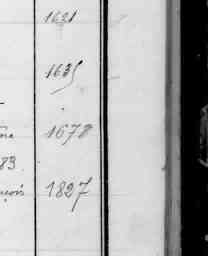 1621
1635
1678
83
1827